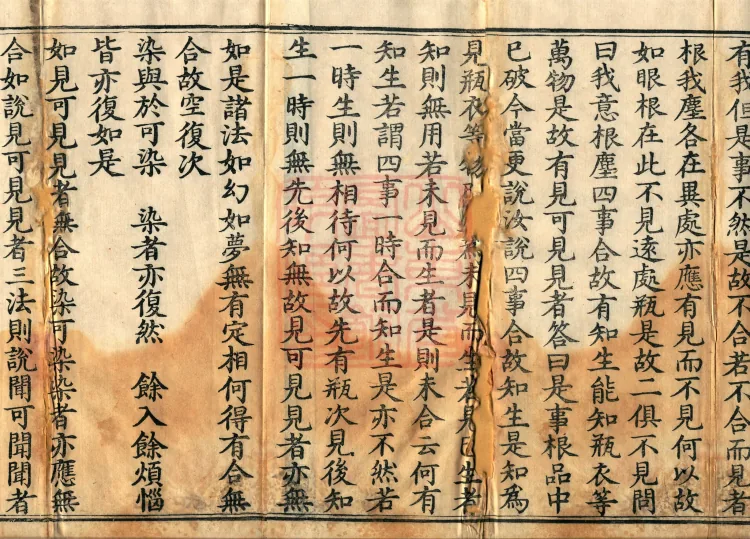 有我但是事不然是故不合若不合而見者
根我塵各在異處亦應有見而不見何以故
如眼根在此不見遠處瓶是故二俱不見問
曰我意根塵四事合故有知生能知瓶衣等
萬物是故有見可見見者答曰是事根品中
已破今當更說汝說四事合故知生是知為
見瓶衣等物為未見而生若見已生者
知則無用若未見而生者是則未合云何有
知生若謂四事一時合而知生是亦不然若
一時生則無相待何以故先有瓶次見後知
生一時則無先後知無故見可見見者亦無
如是諸法如幻如夢無有定相何得有合無
合故空復次
染與於可染　染者亦復然　餘入餘煩惱
皆亦復如是
如見可見見者無合故染可染染者亦應無
合如說見可見見者三法則說聞可聞聞者